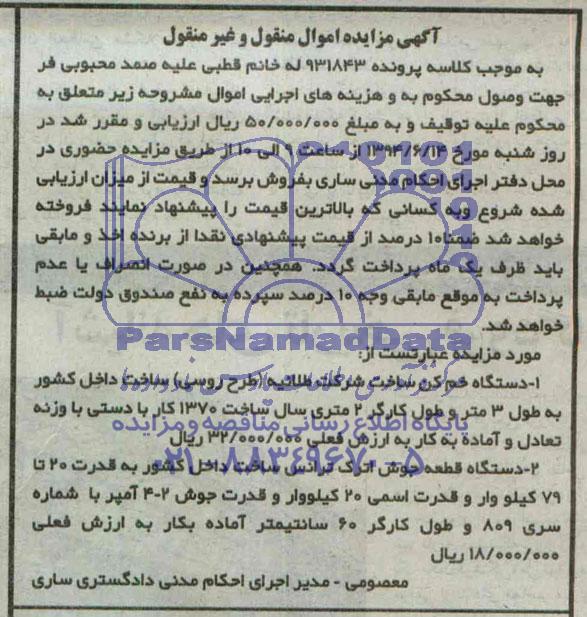 آگهی مزایده اموال منقول و غیر منقول
به موجب کلاسه پرونده ۹۳۱۸۴۳ له خانم قطبی علیه صمد محبوبی فر
جهت وصول محکوم به و هزینه های اجرایی اموال مشروحه زیر متعلق به
محکوم علیه توقیف و به مبلغ ۵۰/۰۰۰/۰۰۰ ریال ارزیابی و مقرر شد در
روز شنبه مورخ ۱۳۹۴/۶/۱۴ از ساعت ۹ الی ۱۰ از طریق مزایده حضوری در
محل دفتر اجرای احکام مدنی ساری بفروش برسد و قیمت از میزان ارزیابی
شده شروع وبه کسانی که بالاترین قیمت را پیشنهاد نمایند فروخته
خواهد شد ضمنا۱۰ درصد از قیمت پیشنهادی نقدا از برنده اخذ و مابقی
باید ظرف یک ماه پرداخت گردد. همچنین در صورت انصراف یا عدم
پرداخت به موقع مابقی وجه ۱۰ درصد سپرده به نفع صندوق دولت ضبط
خواهد شد.
ParsNamadData
مورد مزایده عبارتست از:
۱-دستگاه خم کن ساخت شرکت طلائیه (طرح روسی) ساخت داخل کشور
به طول ۳ متر و طول کارگر ۲ متری سال ساخت ۱۳۷۰ کار با دستی با وزنه
پایگاه اطلاع رسانی مناقصه و مزایده
تعادل و آماده به کار به ارزش فعلی ۳۲/۰۰۰/۰۰۰ ریال
۰۲۱-۸۸۳۴۹۶۷۰-۵
۲-دستگاه قطعه جوش اترک ترانس ساخت داخل کشور به قدرت ۲۰ تا
۷۹ کیلو وار و قدرت اسمی ۲۰ کیلووار و قدرت جوش ۲-۴ آمپر با شماره
سری ۸۰۹ و طول کارگر ۶۰ سانتیمتر آماده بکار به ارزش فعلی
۱۸/۰۰۰/۰۰۰ ریال
معصومی - مدیر اجرای احکام مدنی دادگستری ساری